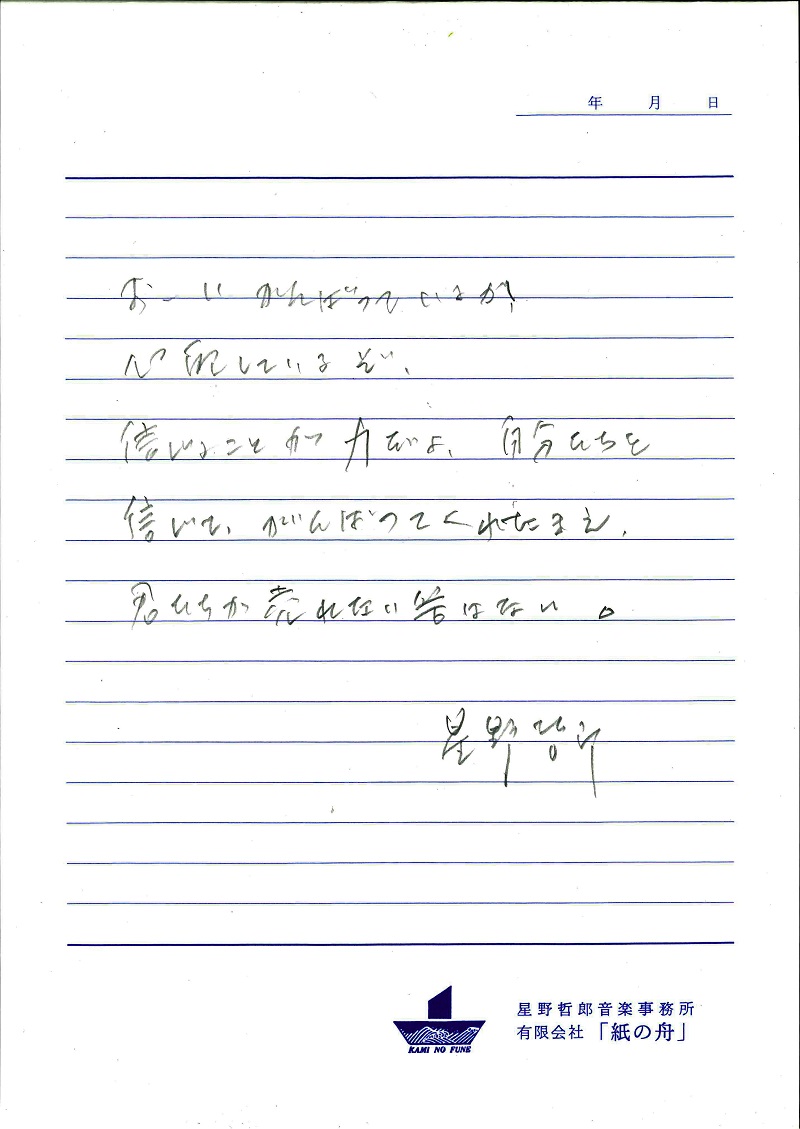 年 月 日
おーい がんばっているか!
心配しているぞ、
信じることが力だよ、自分たちを
信じて、がんばってくれたまえ、
君たちが売れない筈はない。
星野哲郎
KAMI NO FUNE
星野哲郎音楽事務所
有限会社「紙の舟」